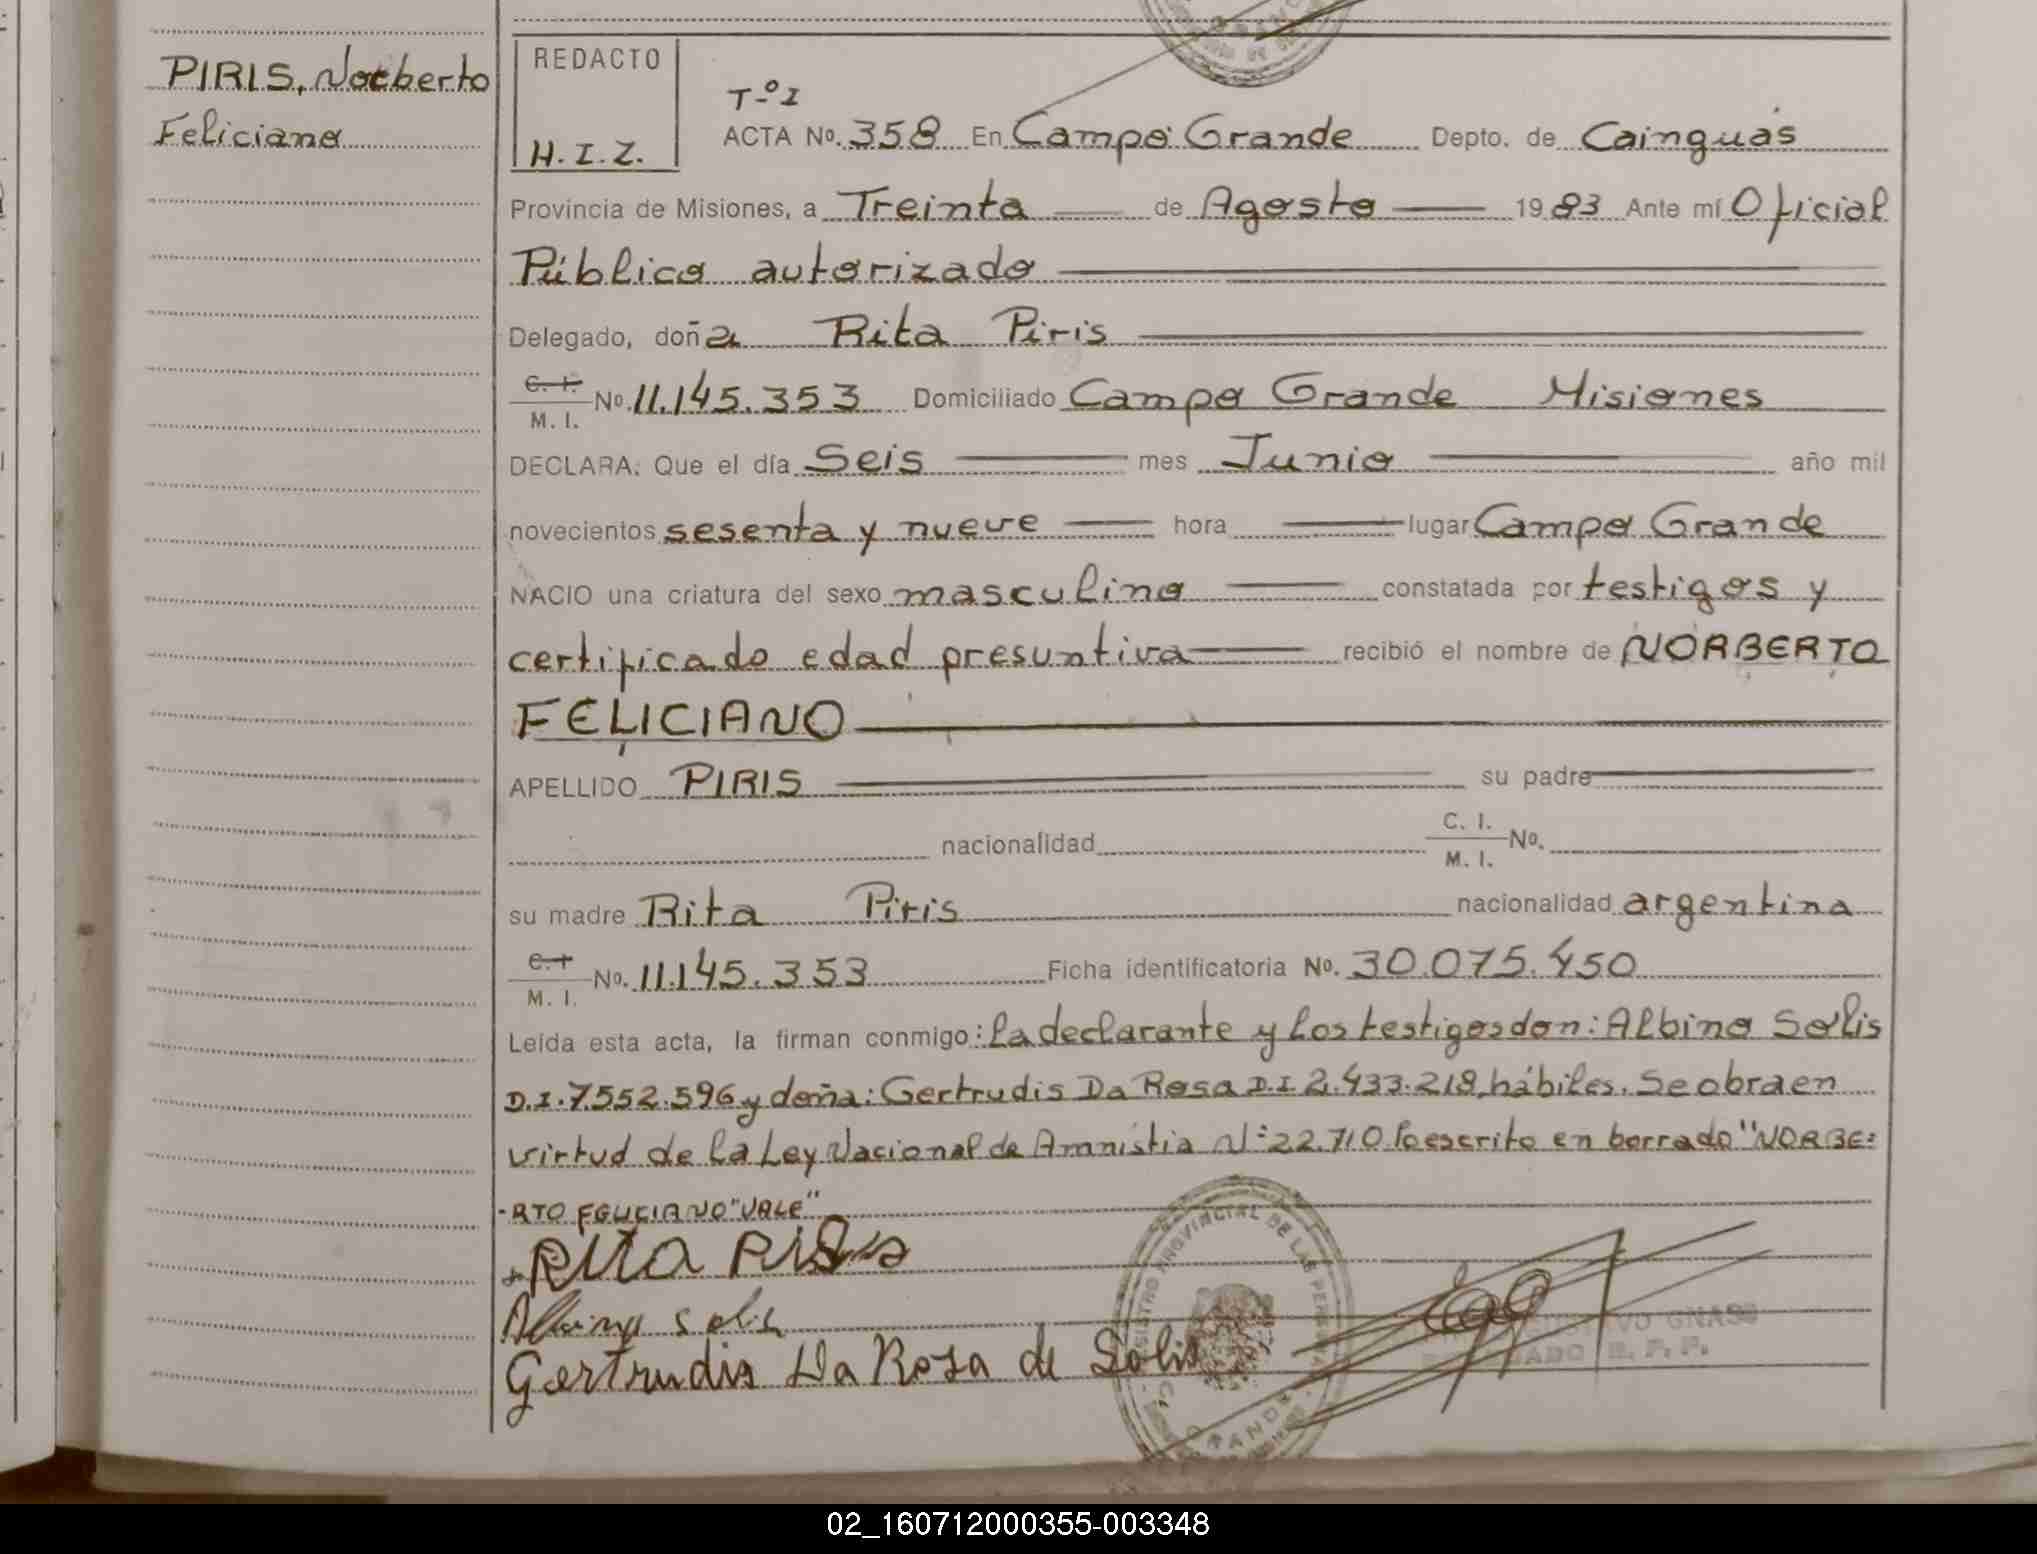 PIRIS, Norberto
Feliciano
REDACTO
H.I.Z.
T-º I
ACTA Nº. 358 En Campo Grande Depto. de Cainguás
Provincia de Misiones, a Treinta de Agosto 1983 Ante mí Oficial
Público autorizado
Delegado, doña Rita Piris
C. I.
M. I. Nº. 11.145.353 Domiciliado Campo Grande Misiones
DECLARA: Que el día Seis mes Junio año mil
novecientos sesenta y nueve hora lugar Campo Grande
NACIO una criatura del sexo masculino constatada por testigos y
certificado edad presuntiva recibió el nombre de NORBERTO
FELICIANO
APELLIDO PIRIS su padre
nacionalidad C. I.
M. I. Nº.
su madre Rita Piris nacionalidad argentina
C. I.
M. I. Nº. 11.145.353 Ficha identificatoria Nº. 30.075.450
Leída esta acta, la firman conmigo: la declarante y los testigos don: Albino Solis
D.I. 7.552.596 y doña: Gertrudis Da Rosa D.I 2.433.218, hábiles. Se obra en
virtud de la Ley Nacional de Amnistia Nº 22.710. lo escrito en borrado "NORBE=
-RTO FELICIANO "VALE"
Rita Piris
Albino Solis
Gertrudis Da Rosa de Solis
REGISTRO PROVINCIAL DE LAS PERSONAS
GRANDE
02_160712000355-003348